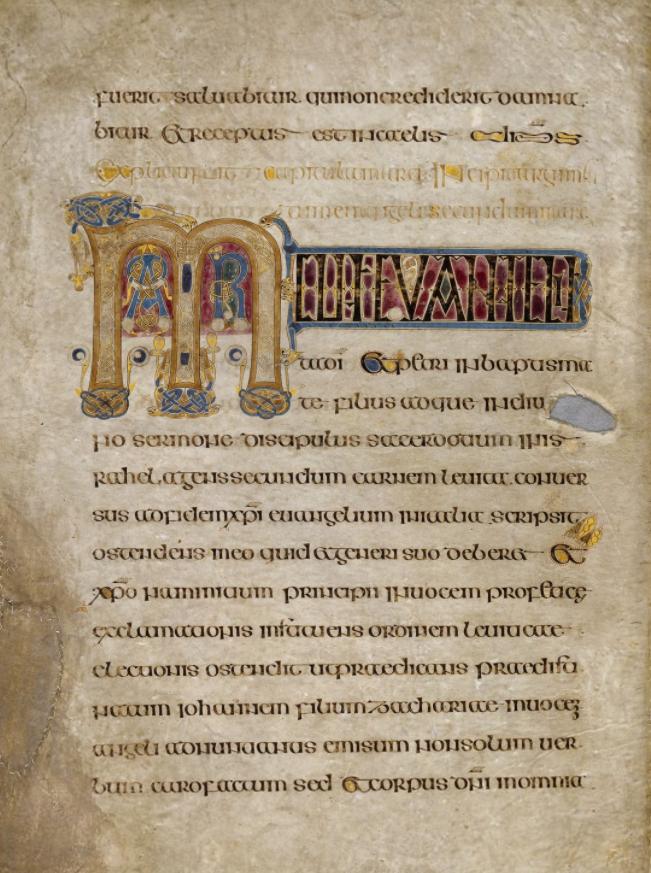 fuerit saluabitur qui non crediderit damna
bitur Et receptus est in caelis
Explicit
secundum
M AR EVANGELI
Et petri in baptisma
te filius atque in diui
no sermone discipulus sacerdotium in is
rahel agens secundum carnem leuita conuer
sus ad fidem xp̄i euangelium in italia scripsit
ostendens in eo quid et generi suo deberet Et
xp̄o nam initium principii in uocem profetice
exclamationis instituens ordinem leuiticae
electionis ostendit ut praedicans praedisti
natum iohannem filium zachariae in uoce
angeli adnuntiantis emisum non solum uer
bum caro factum sed Et corpus dn̄i in omnia